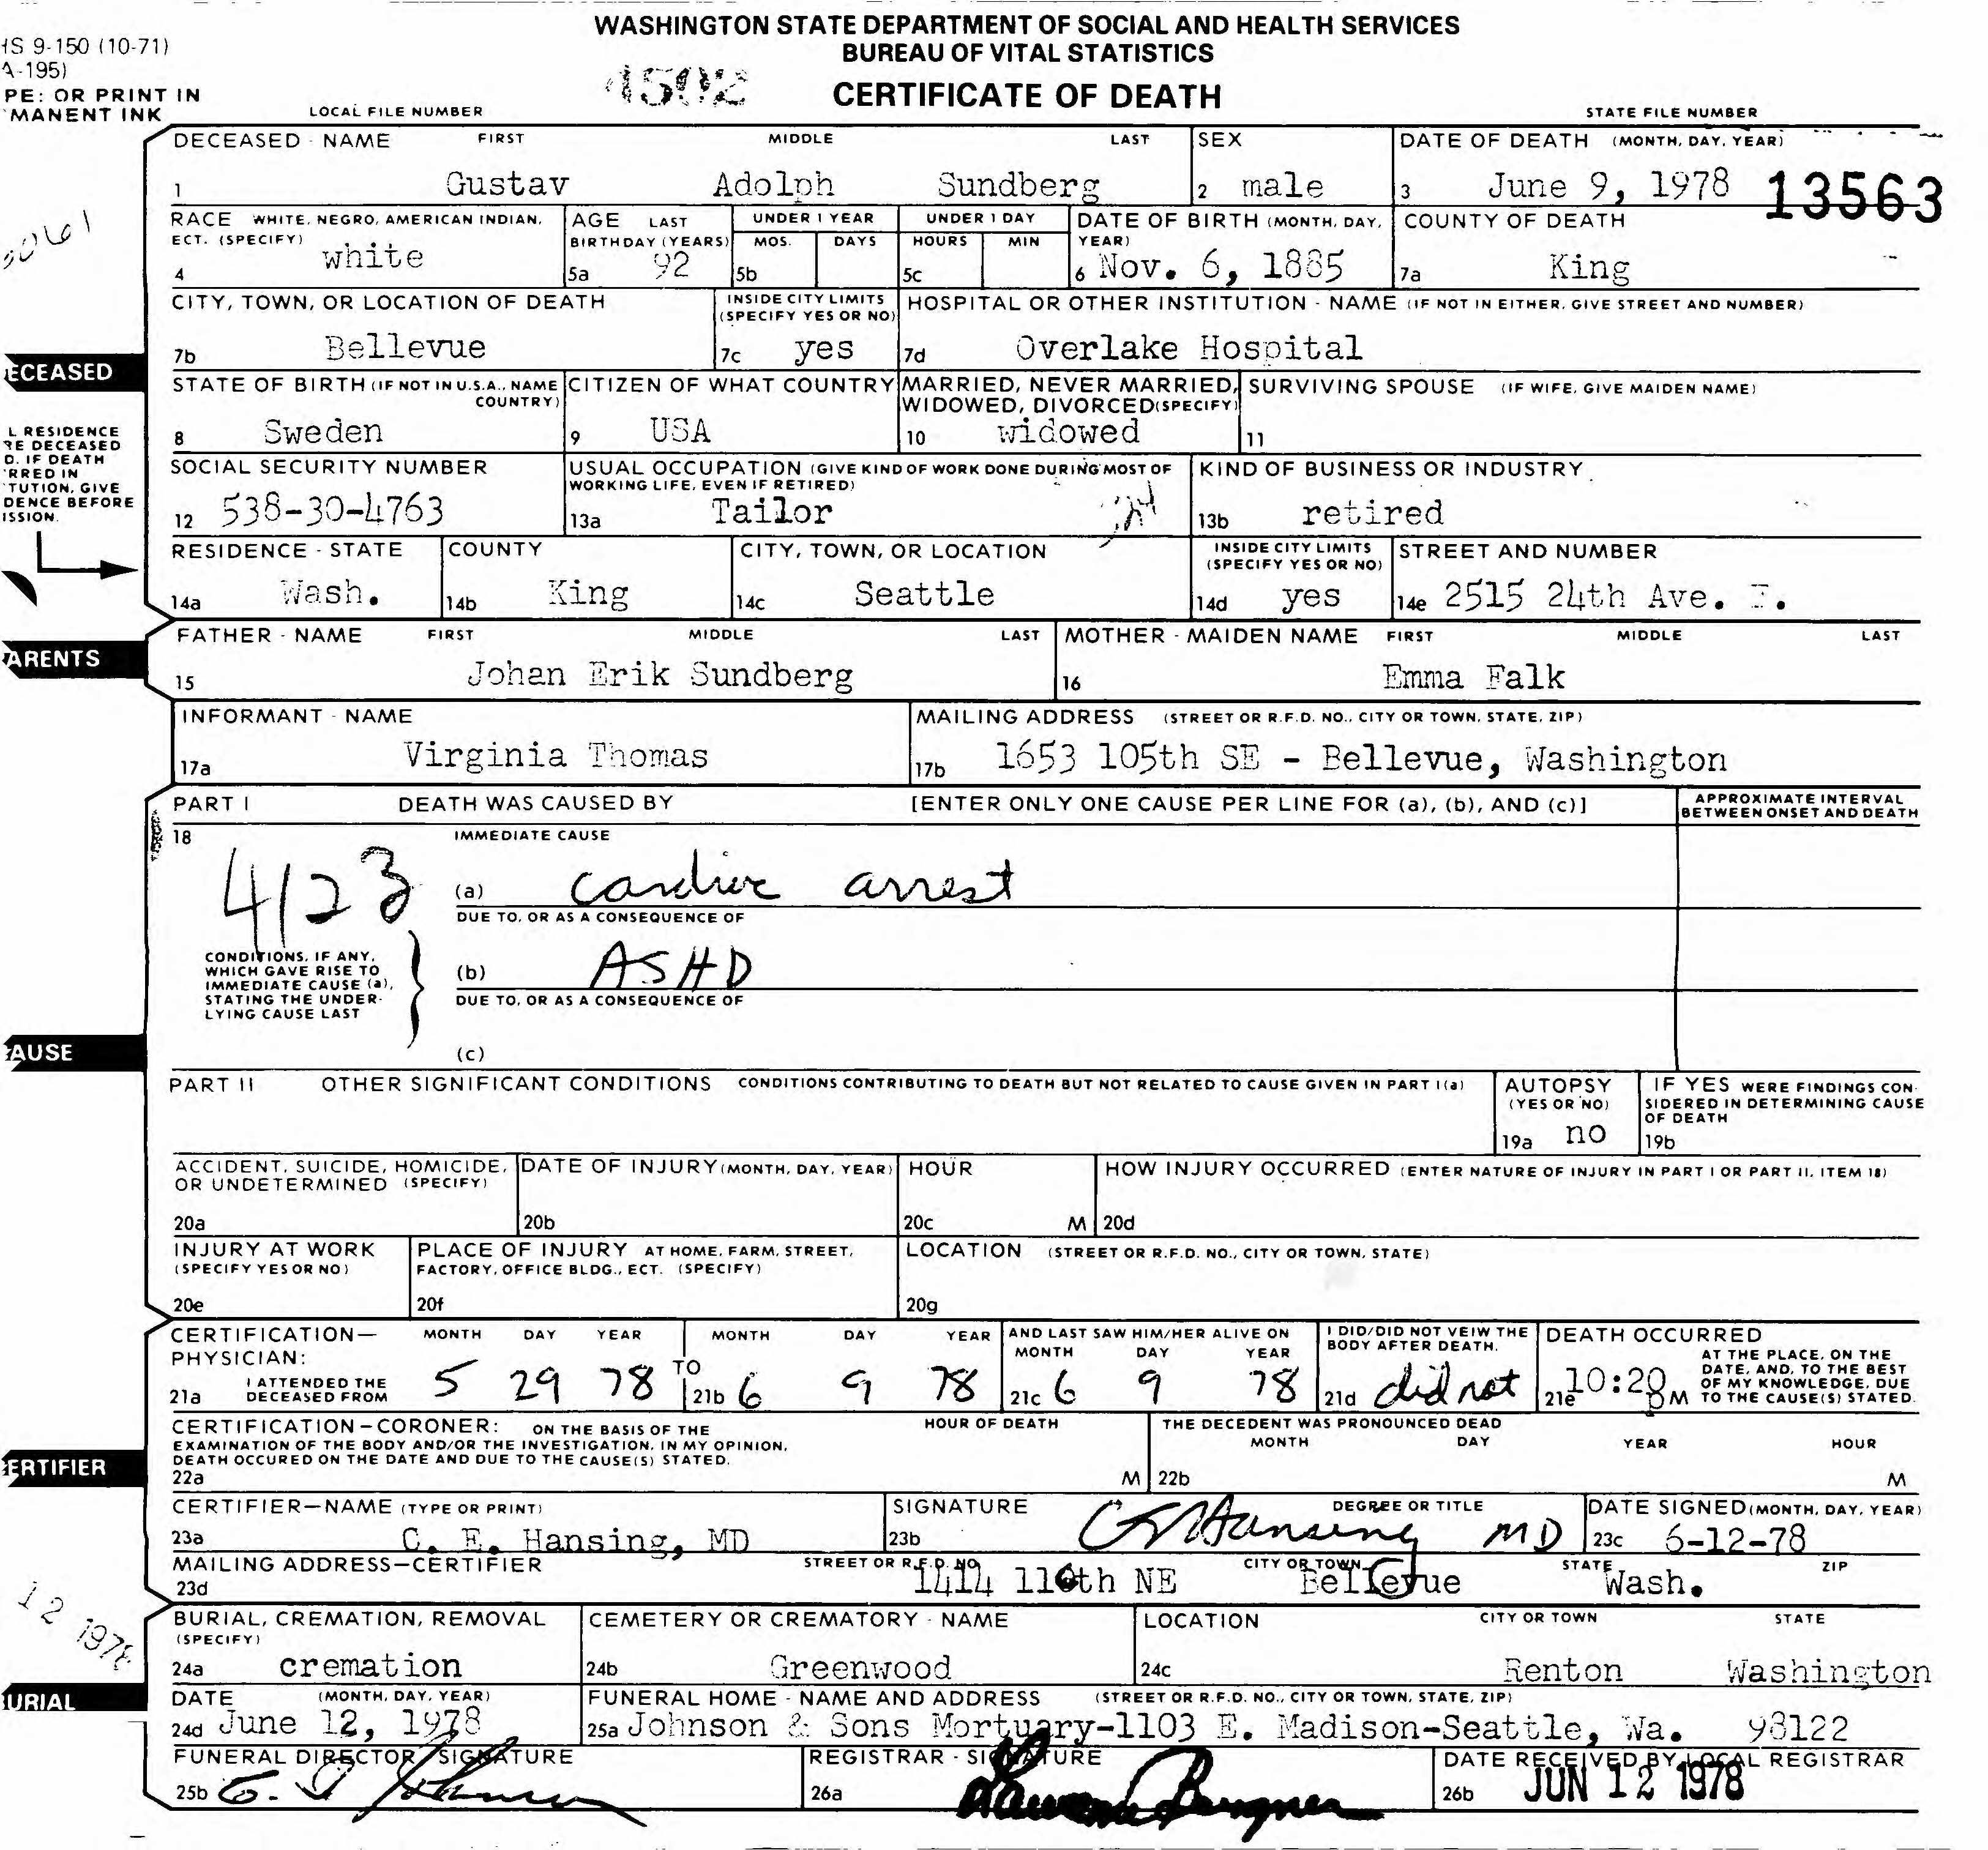 WASHINGTON STATE DEPARTMENT OF SOCIAL AND HEALTH SERVICES
BUREAU OF VITAL STATISTICS
HS 9-150 (10-71)
A-195)
PE: OR PRINT IN
MANENT INK
4502
CERTIFICATE OF DEATH
LOCAL FILE NUMBER
STATE FILE NUMBER
DECEASED - NAME FIRST MIDDLE LAST SEX DATE OF DEATH (MONTH, DAY, YEAR)
1 Gustav Adolph Sundberg 2 male 3 June 9, 1978 13563
RACE WHITE, NEGRO, AMERICAN INDIAN, ECT. (SPECIFY) AGE LAST BIRTHDAY (YEARS) UNDER 1 YEAR MOS. DAYS UNDER 1 DAY HOURS MIN DATE OF BIRTH (MONTH, DAY, YEAR) COUNTY OF DEATH
4 white 5a 92 5b 5c 6 Nov. 6, 1885 7a King
CITY, TOWN, OR LOCATION OF DEATH INSIDE CITY LIMITS (SPECIFY YES OR NO) HOSPITAL OR OTHER INSTITUTION - NAME (IF NOT IN EITHER, GIVE STREET AND NUMBER)
7b Bellevue 7c yes 7d Overlake Hospital
ECEASED
STATE OF BIRTH (IF NOT IN U.S.A., NAME COUNTRY) CITIZEN OF WHAT COUNTRY MARRIED, NEVER MARRIED, WIDOWED, DIVORCED (SPECIFY) SURVIVING SPOUSE (IF WIFE, GIVE MAIDEN NAME)
8 Sweden 9 USA 10 widowed 11
L RESIDENCE
RE DECEASED
D. IF DEATH
RRED IN
TUTION, GIVE
DENCE BEFORE
ISSION.
SOCIAL SECURITY NUMBER USUAL OCCUPATION (GIVE KIND OF WORK DONE DURING MOST OF WORKING LIFE, EVEN IF RETIRED) KIND OF BUSINESS OR INDUSTRY
12 538-30-4763 13a Tailor 13b retired
RESIDENCE - STATE COUNTY CITY, TOWN, OR LOCATION INSIDE CITY LIMITS (SPECIFY YES OR NO) STREET AND NUMBER
14a Wash. 14b King 14c Seattle 14d yes 14e 2515 24th Ave.
ARENTS
FATHER - NAME FIRST MIDDLE LAST MOTHER - MAIDEN NAME FIRST MIDDLE LAST
15 Johan Erik Sundberg 16 Emma Falk
INFORMANT - NAME MAILING ADDRESS (STREET OR R.F.D. NO., CITY OR TOWN, STATE, ZIP)
17a Virginia Thomas 17b 1653 105th SE - Bellevue, Washington
PART I DEATH WAS CAUSED BY [ENTER ONLY ONE CAUSE PER LINE FOR (a), (b), AND (c)] APPROXIMATE INTERVAL BETWEEN ONSET AND DEATH
18 IMMEDIATE CAUSE
4123 (a) cardiac arrest
DUE TO, OR AS A CONSEQUENCE OF
CONDITIONS, IF ANY, WHICH GAVE RISE TO IMMEDIATE CAUSE (a), STATING THE UNDER-LYING CAUSE LAST
(b) ASHD
DUE TO, OR AS A CONSEQUENCE OF
AUSE
(c)
PART II OTHER SIGNIFICANT CONDITIONS CONDITIONS CONTRIBUTING TO DEATH BUT NOT RELATED TO CAUSE GIVEN IN PART I(a) AUTOPSY (YES OR NO) IF YES WERE FINDINGS CON-SIDERED IN DETERMINING CAUSE OF DEATH
19a no 19b
ACCIDENT, SUICIDE, HOMICIDE, OR UNDETERMINED (SPECIFY) DATE OF INJURY (MONTH, DAY, YEAR) HOUR HOW INJURY OCCURRED (ENTER NATURE OF INJURY IN PART I OR PART II, ITEM 18)
20a 20b 20c M 20d
INJURY AT WORK (SPECIFY YES OR NO) PLACE OF INJURY AT HOME, FARM, STREET, FACTORY, OFFICE BLDG., ECT. (SPECIFY) LOCATION (STREET OR R.F.D. NO., CITY OR TOWN, STATE)
20e 20f 20g
CERTIFICATION— PHYSICIAN: MONTH DAY YEAR MONTH DAY YEAR AND LAST SAW HIM/HER ALIVE ON MONTH DAY YEAR I DID/DID NOT VEIW THE BODY AFTER DEATH. DEATH OCCURRED AT THE PLACE, ON THE DATE, AND, TO THE BEST OF MY KNOWLEDGE, DUE TO THE CAUSE(S) STATED.
21a I ATTENDED THE DECEASED FROM 5 29 78 TO 21b 6 9 78 21c 6 9 78 21d did not 21e 10:20 M
CERTIFICATION—CORONER: ON THE BASIS OF THE EXAMINATION OF THE BODY AND/OR THE INVESTIGATION, IN MY OPINION, DEATH OCCURED ON THE DATE AND DUE TO THE CAUSE(S) STATED. HOUR OF DEATH THE DECEDENT WAS PRONOUNCED DEAD MONTH DAY YEAR HOUR
ERTIFIER
22a M 22b M
CERTIFIER—NAME (TYPE OR PRINT) SIGNATURE DEGREE OR TITLE DATE SIGNED (MONTH, DAY, YEAR)
23a C. E. Hansing, MD 23b CE Hansing MD 23c 6-12-78
MAILING ADDRESS—CERTIFIER STREET OR R.F.D. NO. CITY OR TOWN STATE ZIP
23d 1414 116th NE Bellevue Wash.
12 1978
BURIAL, CREMATION, REMOVAL (SPECIFY) CEMETERY OR CREMATORY - NAME LOCATION CITY OR TOWN STATE
24a cremation 24b Greenwood 24c Renton Washington
URIAL
DATE (MONTH, DAY, YEAR) FUNERAL HOME - NAME AND ADDRESS (STREET OR R.F.D. NO., CITY OR TOWN, STATE, ZIP)
24d June 12, 1978 25a Johnson & Sons Mortuary-1103 E. Madison-Seattle, Wa. 98122
FUNERAL DIRECTOR SIGNATURE REGISTRAR - SIGNATURE DATE RECEIVED BY LOCAL REGISTRAR
25b 26a 26b JUN 12 1978